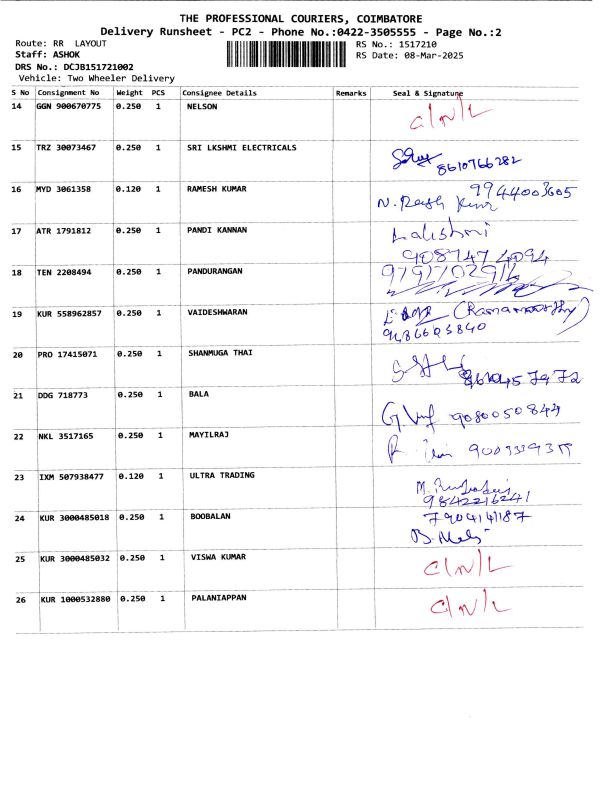 THE PROFESSIONAL COURIERS, COIMBATORE
Delivery Runsheet - PC2 - Phone No.:0422-3505555 - Page No.:2
Route: RR LAYOUT RS No.: 1517210
Staff: ASHOK RS Date: 08-Mar-2025
DRS No.: DCJB151721002
Vehicle: Two Wheeler Delivery
S No Consignment No Weight PCS Consignee Details Remarks Seal & Signature
14 GGN 900670775 0.250 1 NELSON C/N/L
15 TRZ 30073467 0.250 1 SRI LKSHMI ELECTRICALS
8610766282
16 MYD 3061358 0.120 1 RAMESH KUMAR 9944003605
17 ATR 1791812 0.250 1 PANDI KANNAN Lakshmi
9087474094
18 TEN 2208494 0.250 1 PANDURANGAN
19 KUR 558962857 0.250 1 VAIDESHWARAN (Ramamoorthy)
9486603840
20 PRO 17415071 0.250 1 SHANMUGA THAI
21 DDG 718773 0.250 1 BALA
9080050844
22 NKL 3517165 0.250 1 MAYILRAJ
23 IXM 507938477 0.120 1 ULTRA TRADING
9842216241
24 KUR 3000485018 0.250 1 BOOBALAN 7904141187
25 KUR 3000485032 0.250 1 VISWA KUMAR C/N/L
26 KUR 1000532880 0.250 1 PALANIAPPAN C/N/L